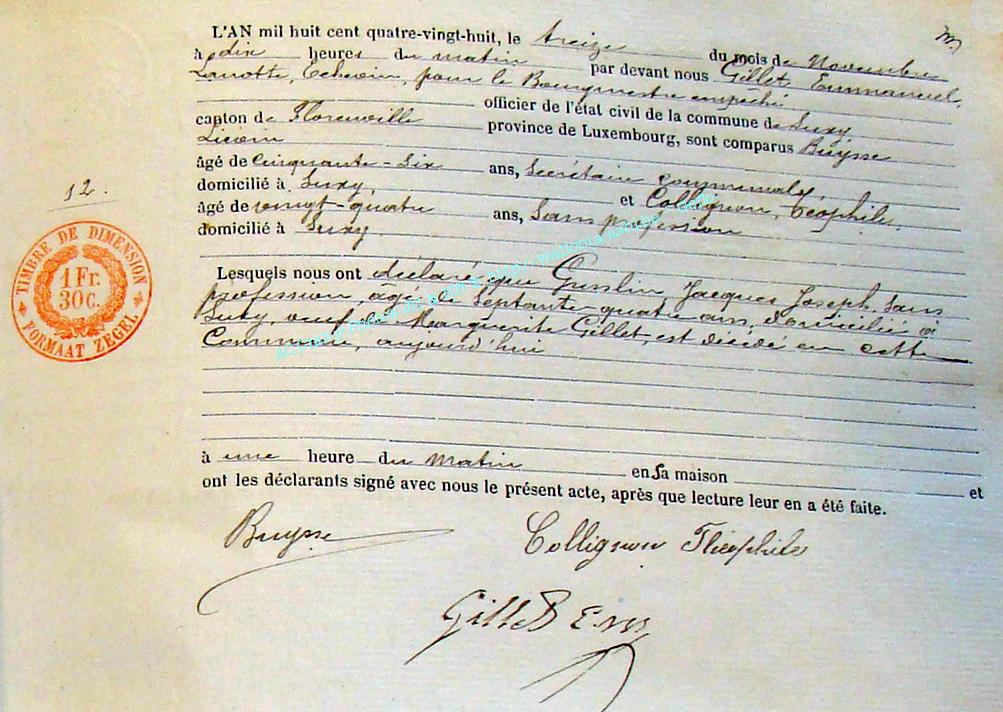 L'AN mil huit cent quatre-vingt-huit, le treize du mois de Novembre
à dix heures du matin par devant nous Gillet, Emmanuel,
Echevin, pour le Bourgmestre empêché
officier de l'état civil de la commune de Suxy
canton de Florenville province de Luxembourg, sont comparus Buysse
âgé de Cinquante-Six ans, Secrétaire communal,
domicilié à Suxy, et Collignon, Téophile,
âgé de vingt-quatre ans, Sans profession
domicilié à Suxy
12.
TIMBRE DE DIMENSION
1 Fr.
30 C.
FORMAAT ZEGEL
Lesquels nous ont déclaré que Jacques Joseph, Sans
profession, âgé de Septante-quatre ans, domicilié à
Suxy, veuf de Marguerite Gillet, est décédé en cette
Commune, aujourd'hui
à une heure du matin en Sa maison et
ont les déclarants signé avec nous le présent acte, après que lecture leur en a été faite.
Buysse Collignon Théophile
Gillet Em